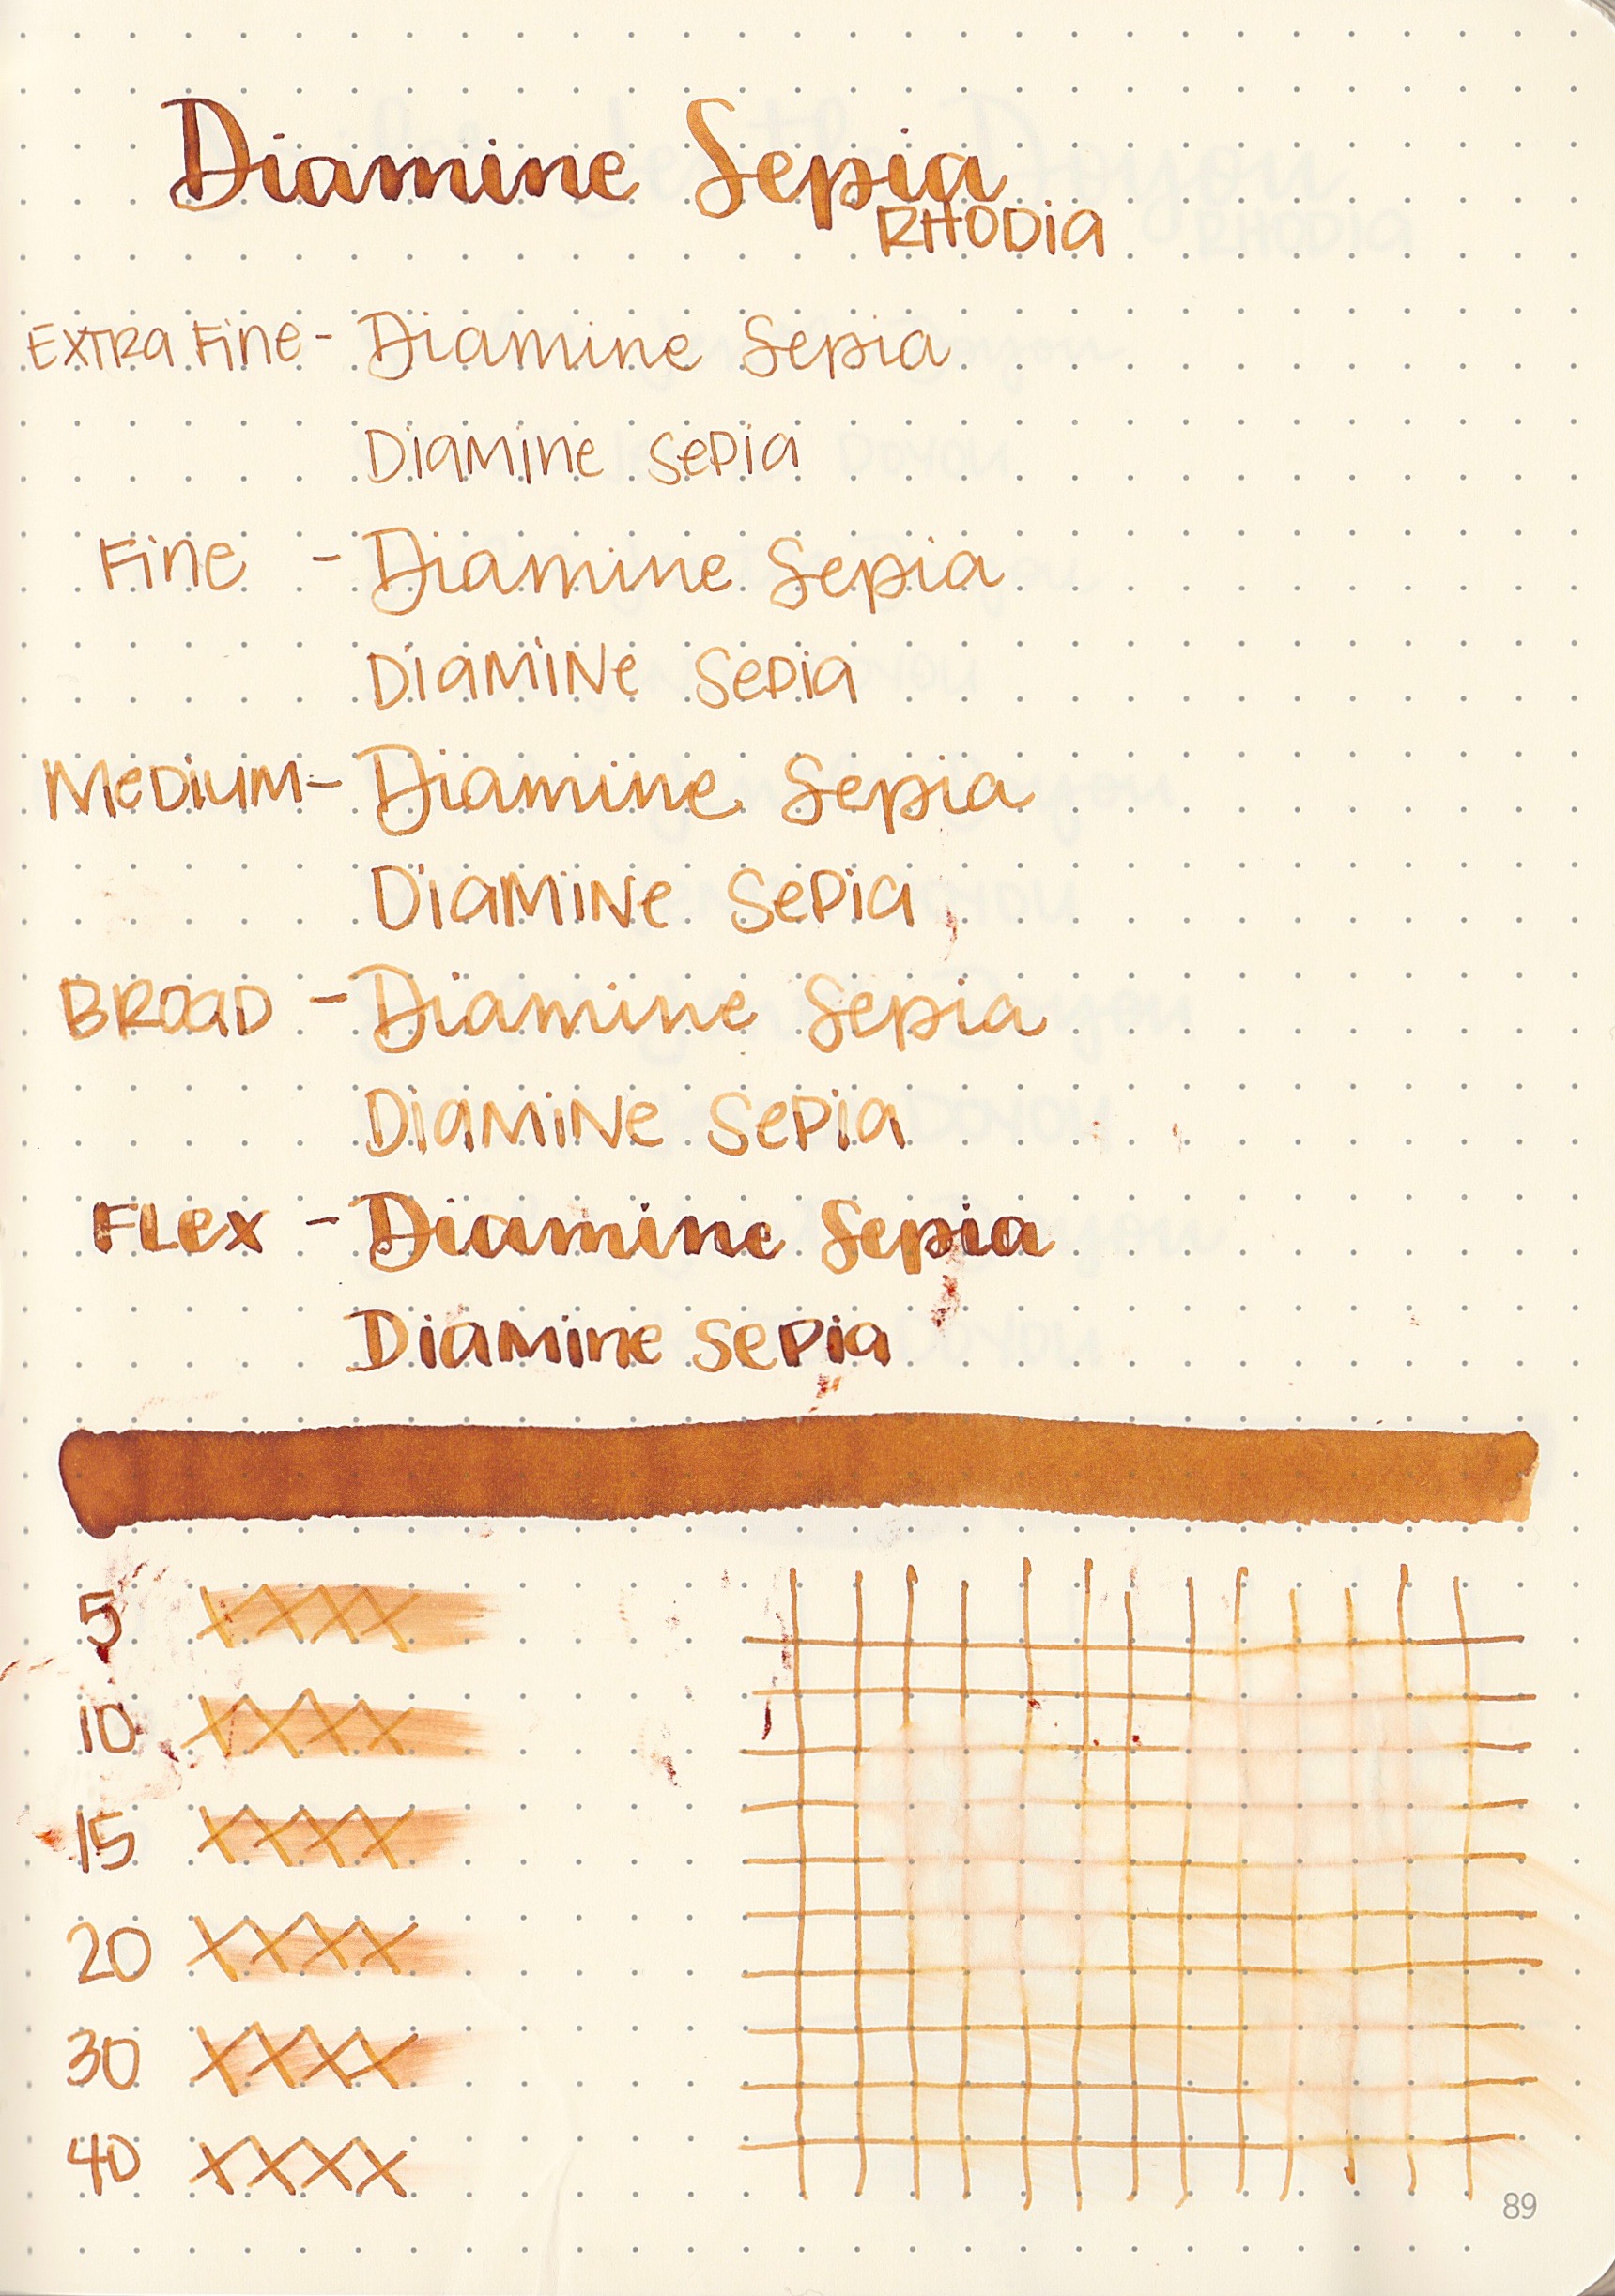 Diamine Sepia
RHODIA
EXTRA FINE - Diamine Sepia
DIAMINE SEPIA
FINE - Diamine Sepia
DIAMINE SEPIA
MEDIUM - Diamine Sepia
DIAMINE SEPIA
BROAD - Diamine Sepia
DIAMINE SEPIA
FLEX - Diamine Sepia
DIAMINE SEPIA
5 XXXX
10 XXXX
15 XXXX
20 XXXX
30 XXXX
40 XXXX
89